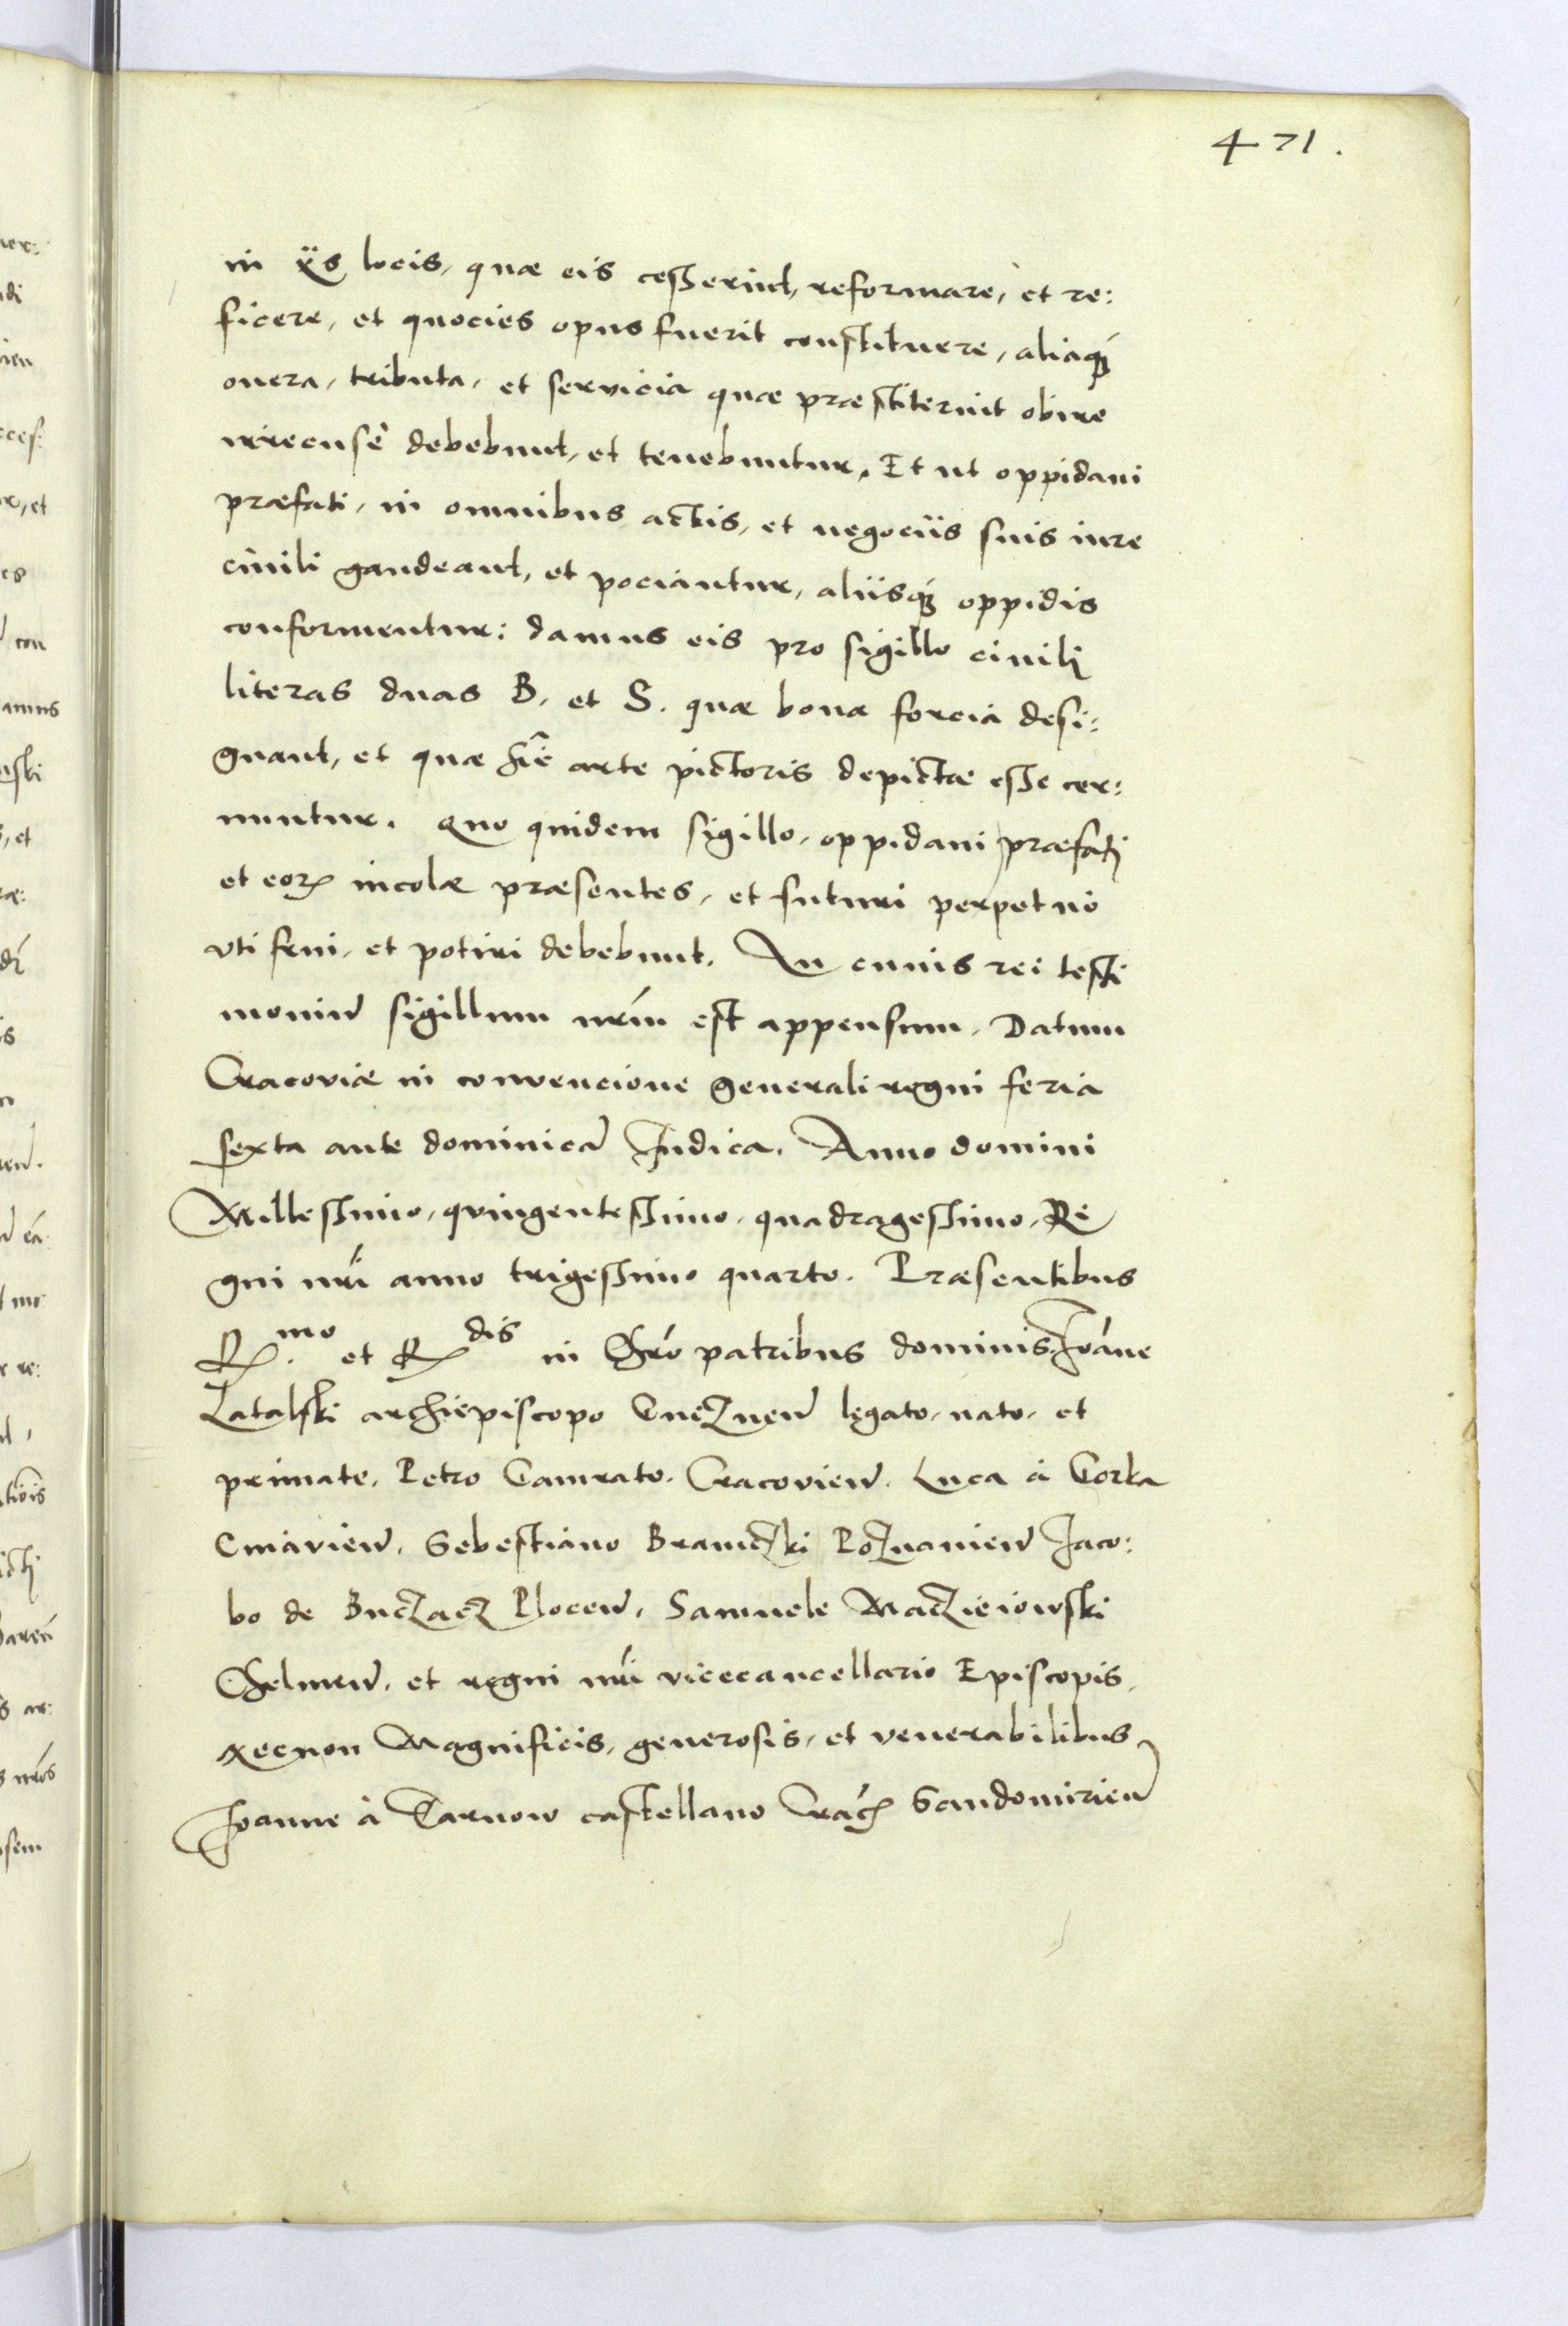 471.
in ijs locis, quæ eis cesserint, reformare, et re:
ficere, et quocies opus fuerit constituere, aliaq́ꝫ
onera, tributa, et servicia quæ præstiterint obire
irrecusè debebunt, et tenebuntur. Et ut oppidani
præfati, in omnibus actis, et negociis suis iure
ciuili gaudeant, et pociantur, aliisq́ꝫ oppidis
conformentur: damus eis pro sigillo ciuili
literas duas B. et S. quæ bona forcia desi:
gnant, et quæ hîc arte pictoris depictæ esse cer:
nuntur. Quo quidem sigillo, oppidani præfati
et eoꝝ incolæ præsentes, et futuri perpetuò
vti frui, et potiri debebunt. In cuius rei testi
moniũ sigillum nr̃m est appensum. Datum
Cracoviæ in convencione generali regni feria
sexta ante dominicã Iudica. Anno domini
Millessimo, quingentessimo, quadragessimo, Re
gni nr̃i anno trigessimo quarto. Præsentibus
R.mo et Rdis in Chr̃o patribus dominis Ioãne
Latalski archiepiscopo Gneznen̄ legato, nato, et
primate, Petro Gamrato, Cracovien̄. Luca à Gorka
Cuiavien̄. Sebestiano Braniczki Poznanien̄ Iaco:
bo de Buczacz Plocen̄, Samuele Macziejowski
Chelmen̄. et regni nr̃i vicecancellario Episcopis,
Necnon Magnificis, generosis, et venerabilibus
Joanne à Tarnow castellano Crac̃ Sandomirien̄